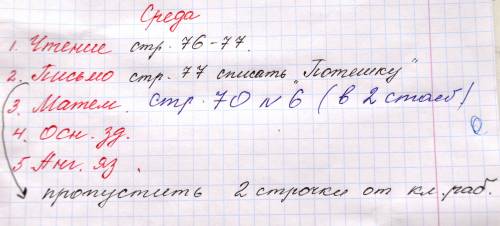 Среда
1. Чтение стр. 76-77.
2. Письмо стр. 77 списать "Потешку"
3. Матем. стр. 70 №6 (в 2 столб)
4. Осн. зд.
5 Анг. яз.
пропустить 2 строчки от кл. раб.